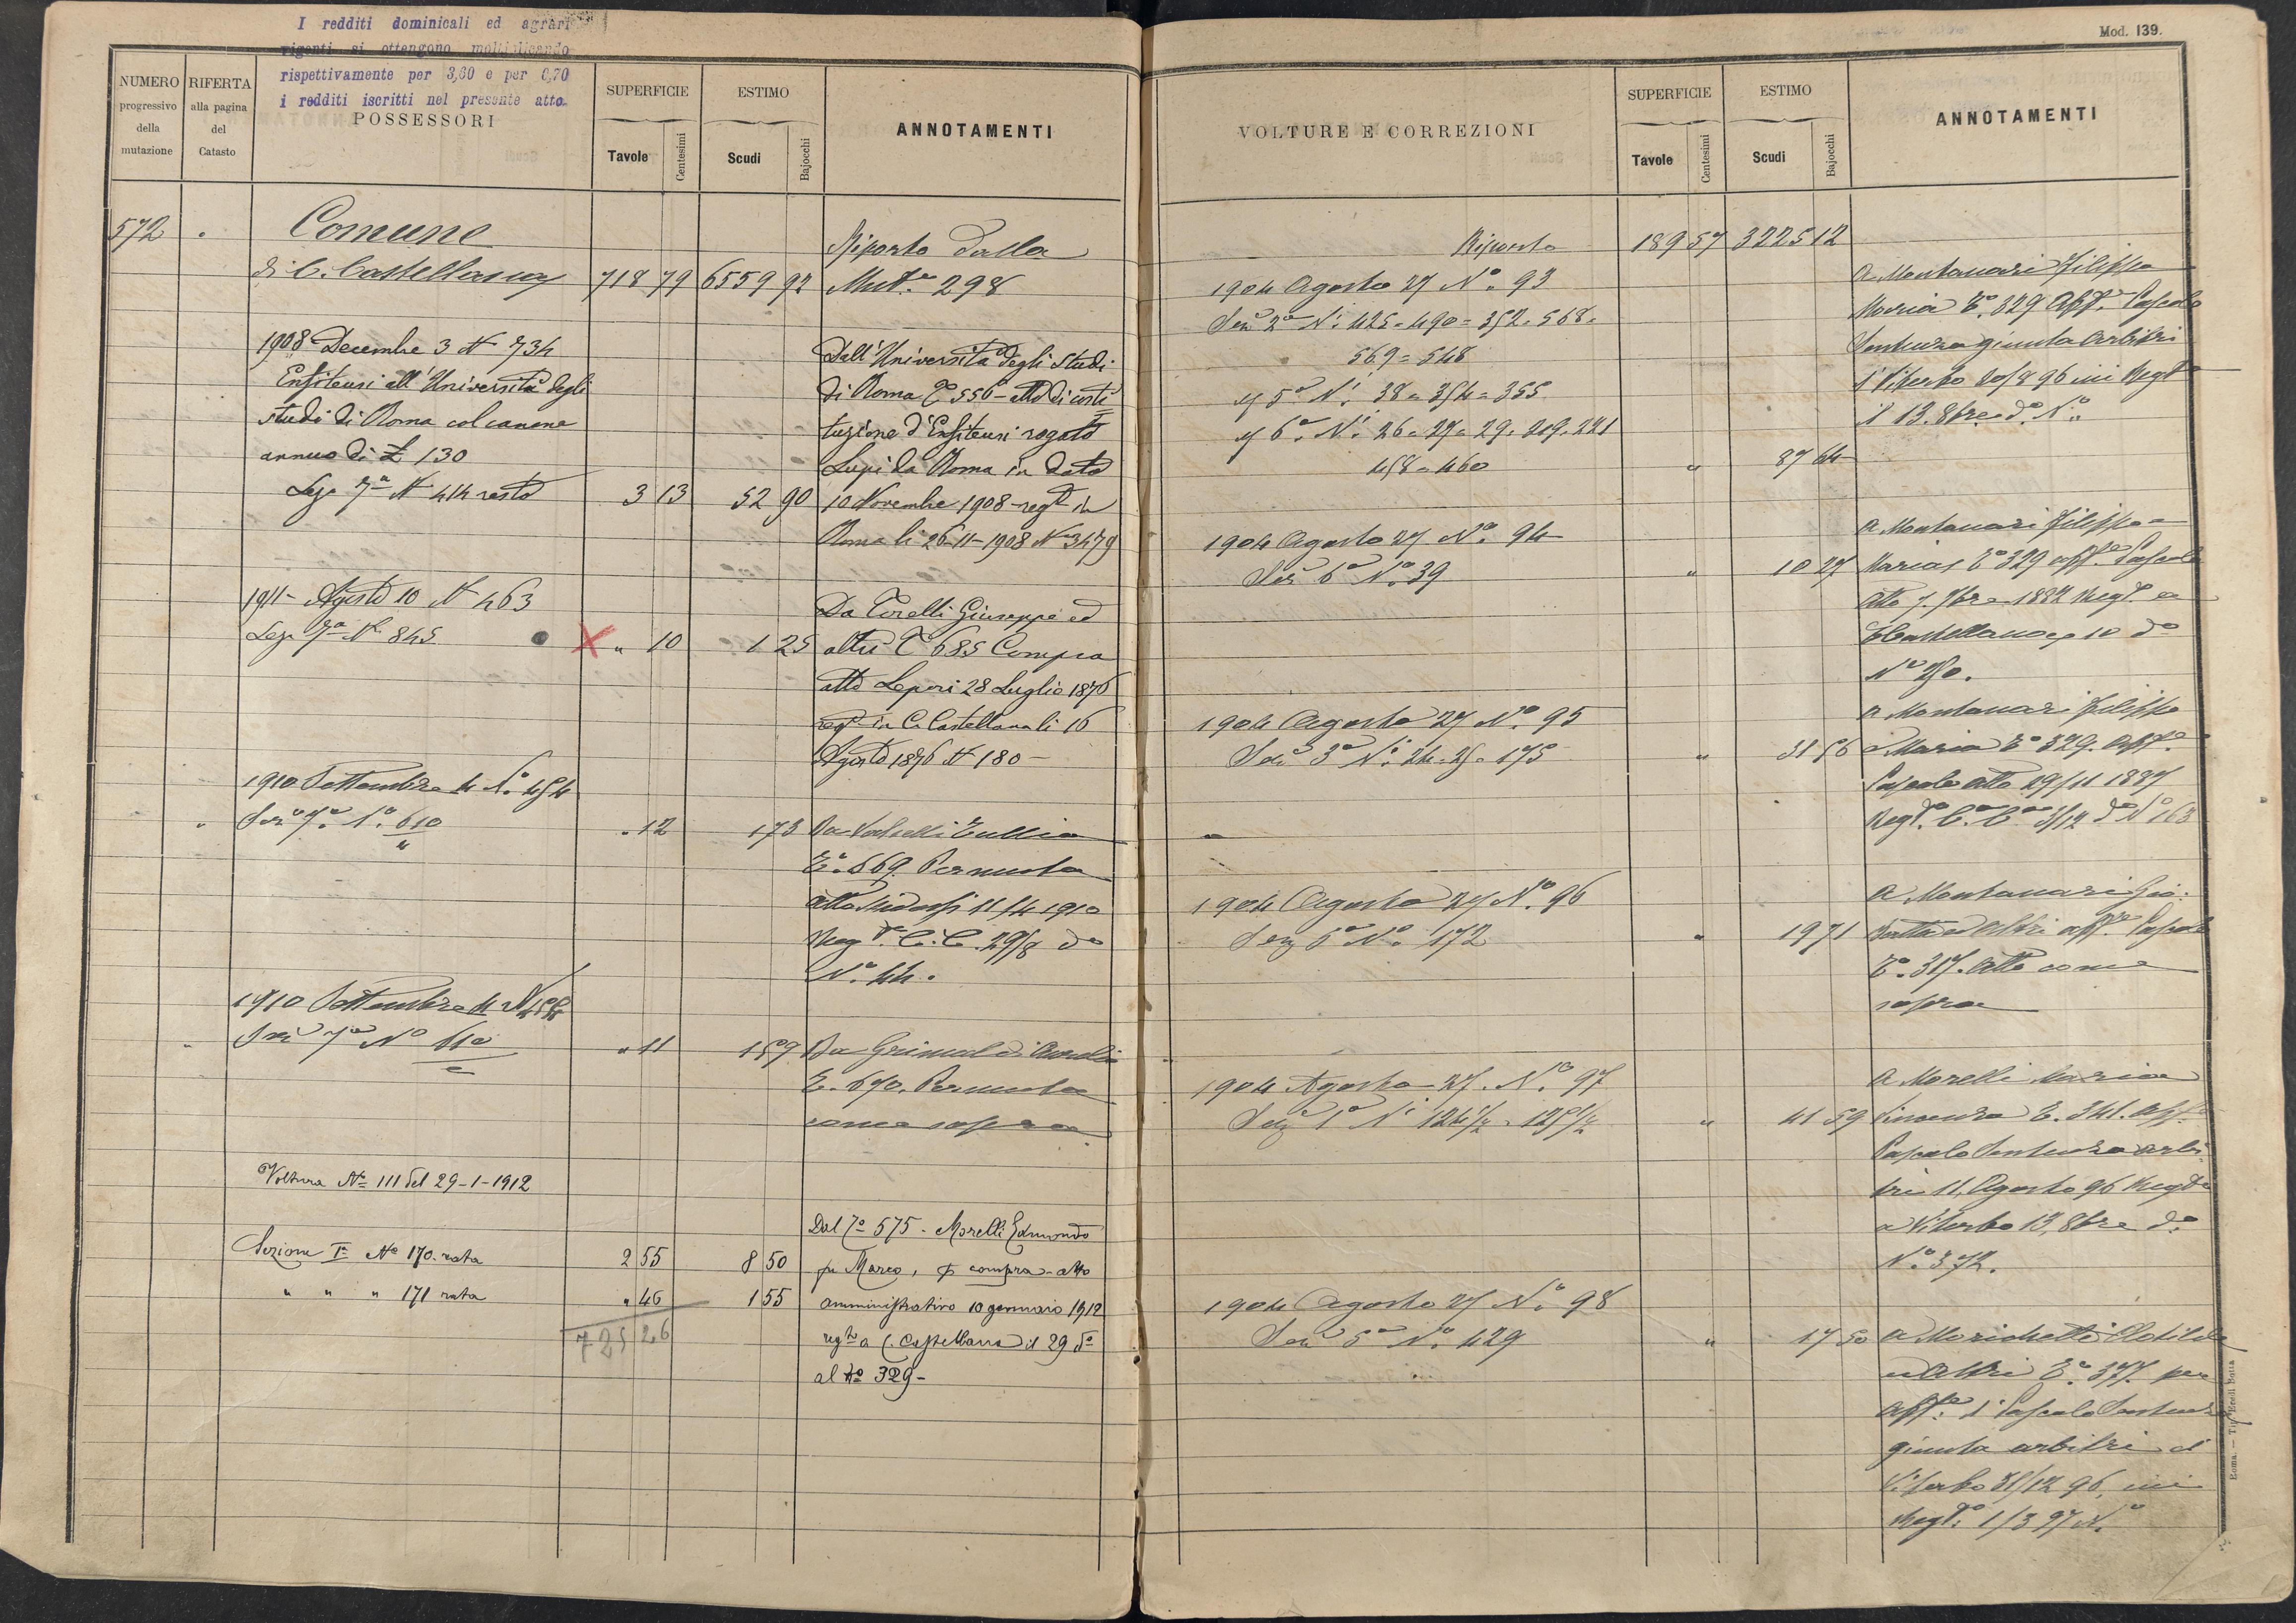 I redditi dominicali ed agrari
vigenti si ottengono moltiplicando
rispettivamente per 3,60 e per 6,70
i redditi iscritti nel presente atto.
NUMERO
progressivo
della
mutazione
RIFERTA
alla pagina
del
Catasto
POSSESSORI
SUPERFICIE
Tavole
Centesimi
ESTIMO
Scudi
Bajocchi
ANNOTAMENTI
572
Comune
di C. Castellana 718 79 6559 92
Riporto dalla
Mut. 298
1908 Decembre 3 N 734
Enfiteusi all'Università degli
studi di Roma col canone
annuo di £ 130
Sez 7ª N 414 resto 3 13 52 90
Dall'Università degli Studi
di Roma T 556 - atto di costi
tuzione d'Enfiteusi rogato
Lupi da Roma in data
10 Novembre 1908 regto in
Roma li 26-11-1908 N 3479
1911 - Agosto 10 N 463
Sez 7ª N 845 X " 10 1 25
Da Torelli Giuseppe ed
altri T 685 Compra
atto Lepori 28 Luglio 1876
regto in C. Castellana li 16
Agosto 1876 N 180 -
1910 Settembre 4 No 454
Sez 7ª No 610 " 12 1 73
"
Tullia
Tº 669. Permuta
atto 11/4 1910
Regto C. C. 29/8 do
Nº 44.
1910 Settembre 4 N
Sez 7ª Nº 610 " 11 1 59
Da Grimaldi
T. 670. Permuta
come sopra
Voltura No 111 del 29-1-1912
Sezione Iª No 170 rata 2 55 8 50
" " " 171 rata " 46 1 55
725 26
Dal To 575 - Morelli Edmondo
fu Marco, p compra - atto
amministrativo 10 gennaio 1912
regto a C. Castellana il 29 do
al No 329 -
Mod. 139.
VOLTURE E CORREZIONI
SUPERFICIE
Tavole
Centesimi
ESTIMO
Scudi
Bajocchi
ANNOTAMENTI
Riporto 189 57 3225 12
1904 Agosto 27 Nº 93
Sez 2ª Ni 425 = 490 = 352 = 568 =
569 = 548
" 5ª Ni 38 = 354 = 355
" 6ª Ni 26 = 27 = 29. 219. 221
458 = 460 " 87 64
A Montanari Filippo
Maria Tº 329 Aff. Pascolo
Sentenza giunta arbitri
di Viterbo 20/8 96 ivi Regto
il 13. 8bre do Nº
1904 Agosto 27 Nº 94
Sez 6ª Nº 39 " 10 27
A Montanari Filippo
Maria Tº 329 aff. Pascolo
atto 7. 7bre 1882 Regto a
C. Castellana 10 do
Nº 250.
1904 Agosto 27 Nº 95
Sez 3ª Ni 24. 25. 175 " 31 56
A Montanari Filippo
Maria Tº 329. aff.
Pascolo atto 29/11 1887
Regto C. Cna 3/12 do Nº 163
1904 Agosto 27 Nº 96
Sez 6ª Nº 172 " 19 71
A Montanari Gio:
Batta ed altri aff. Pascolo
Tº 317. atto come
sopra
1904 Agosto 27. Nº 97
Sez 1ª Ni 124 1/2 . 125 1/2 " 41 59
A Morelli Maria
Vincenza T. 341. aff.
Pascolo Sentenza arbi
tri 11, Agosto 96 Regto
a Viterbo 13, 8bre do
Nº 372.
1904 Agosto 27 Nº 98
Sez 5ª Nº 429 " 17 50
A Morichetti Clotilde
ed Altri Tº 377. per
aff. di Pascolo Sentenza
giunta arbitri di
Viterbo 31/12 96, ivi
Regto 1/3 97 N.
Roma. — Tip.